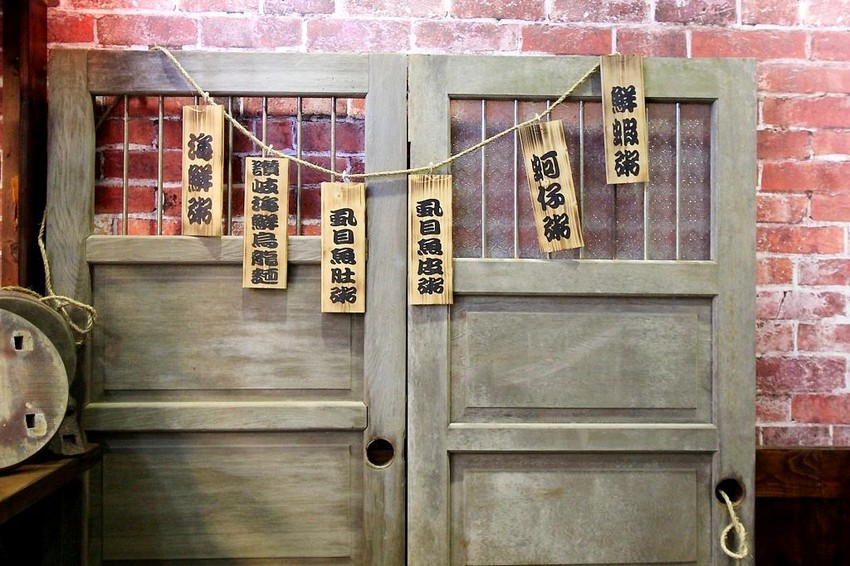 海鮮粥
讚岐海鮮烏龍麵
虱目魚肚粥
虱目魚皮粥
蚵仔粥
鮮蝦粥